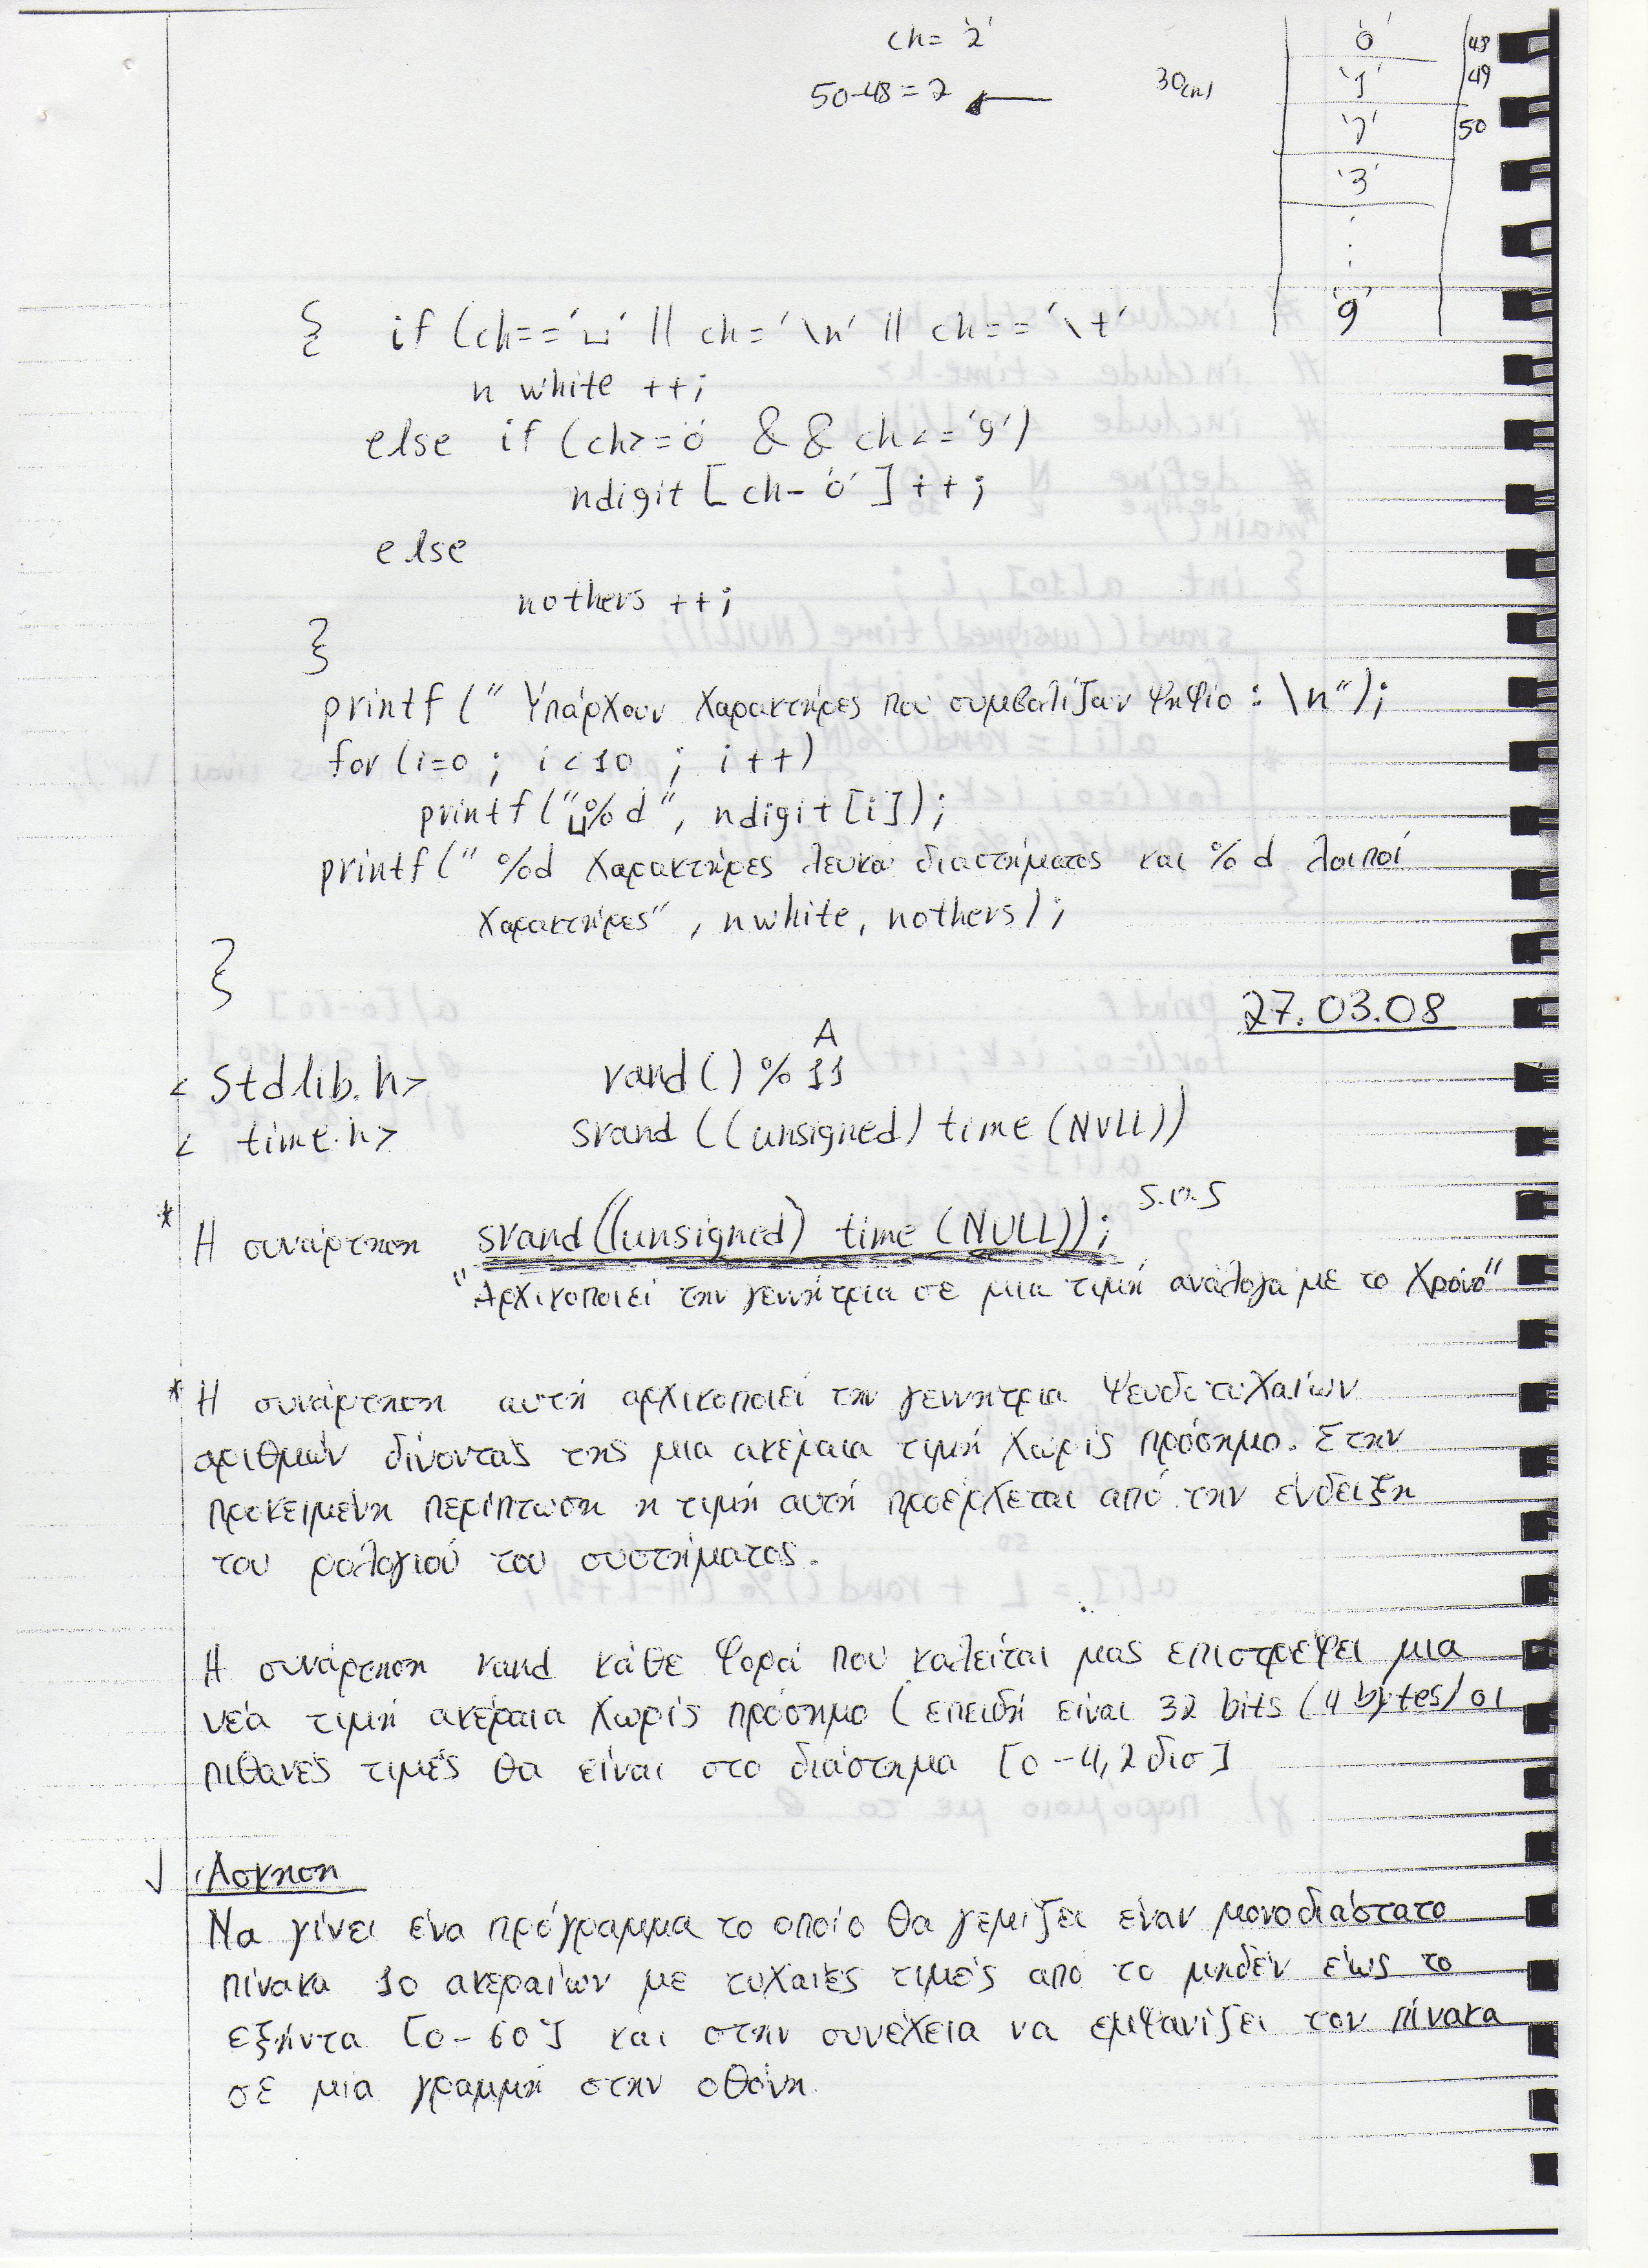 ch = '2'
50-48 = 2
30(h)
'0' 48
'1' 49
'2' 50
'3'
'9'
{ if (ch=='␣' || ch='\n' || ch=='\t'
n white ++;
else if (ch>='0' && ch<='9')
ndigit [ch-'0']++;
else
nothers ++;
}
printf (" Υπάρχουν χαρακτήρες που συμβολίζαν ψηφίο : \n");
for (i=0 ; i<10 ; i++)
printf("␣%d", ndigit[i]);
printf(" %d χαρακτήρες λευκού διαστήματος και %d λοιποί
χαρακτήρες", nwhite, nothers);
}
27.03.08
A
<stdlib.h> rand() % 11
< time.h> srand((unsigned) time (NULL))
s.o.s
* Η συνάρτηση srand((unsigned) time (NULL));
"Αρχικοποιεί την γεννήτρια σε μια τιμή ανάλογα με το χρόνο"
* Η συνάρτηση αυτή αρχικοποιεί την γεννήτρια ψευδοτυχαίων
αριθμών δίνοντας της μια ακέραια τιμή χωρίς πρόσημο. Στην
προκειμένη περίπτωση η τιμή αυτή προέρχεται από την ένδειξη
του ρολογιού του συστήματος.
Η συνάρτηση rand κάθε φορά που καλείται μας επιστρέφει μια
νέα τιμή ακέραια χωρίς πρόσημο (επειδή είναι 32 bits (4 bytes) οι
πιθανές τιμές θα είναι στο διάστημα [0-4,2δισ]
√ Άσκηση
Να γίνει ένα πρόγραμμα το οποίο θα γεμίζει έναν μονοδιάστατο
πίνακα 10 ακεραίων με τυχαίες τιμές από το μηδέν έως το
εξήντα [0-60] και στην συνέχεια να εμφανίζει τον πίνακα
σε μία γραμμή στην οθόνη.